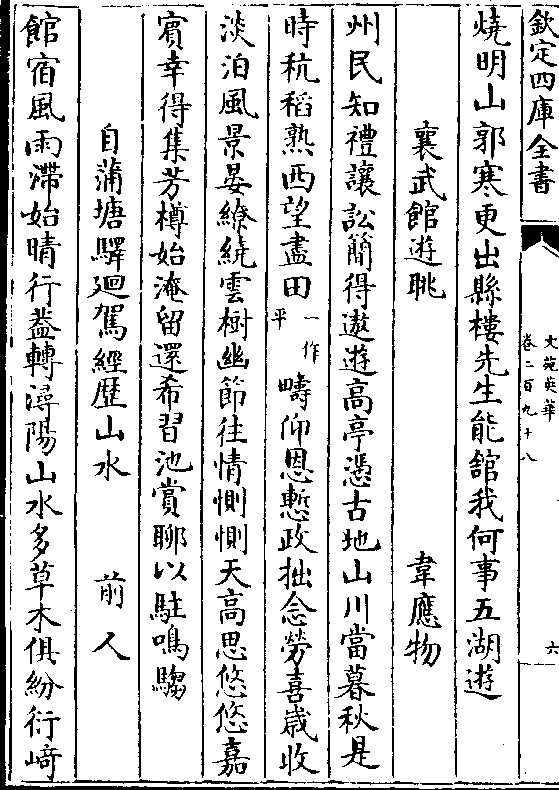 欽定四庫全書
文苑英華
卷二百九十八
六
燒明山郭寒更出縣樓先生能館我何事五湖遊
襄武館遊眺 韋應物
州民知禮讓訟簡得遨遊高亭憑古地山川當暮秋是
時秔稻熟西望盡田一作平疇仰恩慙政拙念勞喜歲收
淡泊風景晏繚繞雲樹幽節往情惻惻天高思悠悠嘉
賓幸得集芳樽始淹留還希習池賞聊以駐鳴騶
自蒲塘驛廻駕經歴山水 前人
館宿風雨滯始晴行葢轉潯陽山水多草木俱紛衍﨑